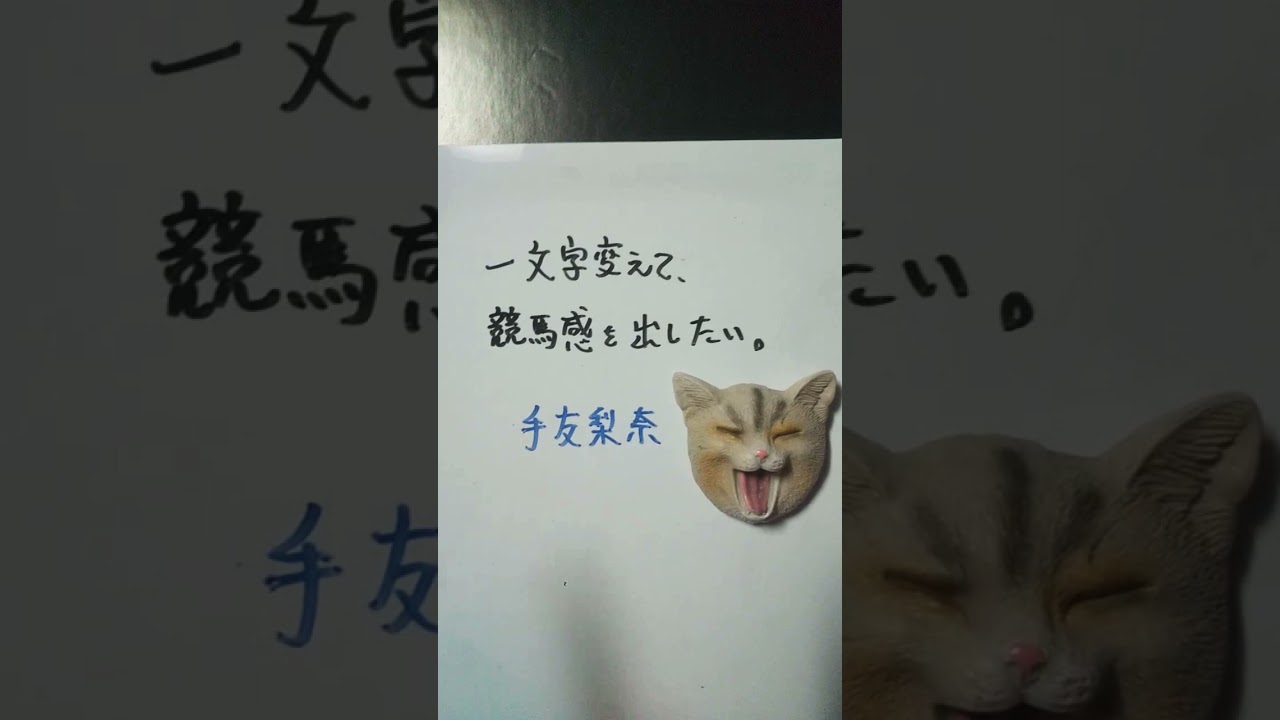 一文字変えて、
競馬感を出したい。
手友梨奈